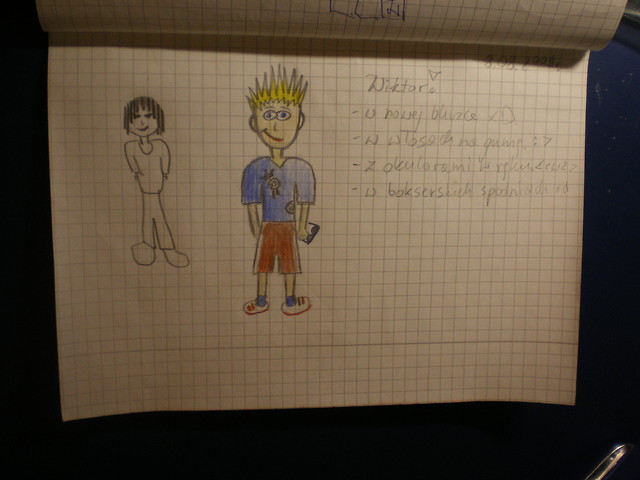 Wiktor:
- w nowej bluzce xD
- w włosach na gumę :>
- z okularami i
- w bokserskich spodniach xd